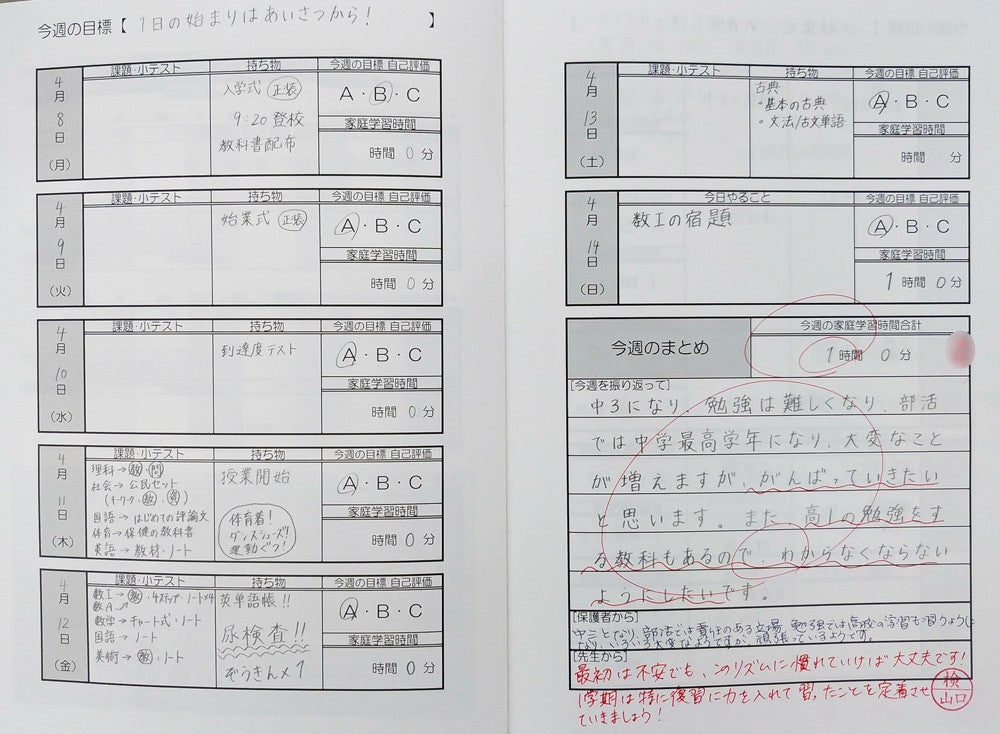 今週の目標【 1日の始まりはあいさつから! 】
課題・小テスト 持ち物 今週の目標 自己評価
4月8日(月)
入学式 正装
9:20 登校
教科書配布
A・B・C
家庭学習時間
時間 0 分
課題・小テスト 持ち物 今週の目標 自己評価
4月9日(火)
始業式 正装
A・B・C
家庭学習時間
時間 0 分
課題・小テスト 持ち物 今週の目標 自己評価
4月10日(水)
到達度テスト
A・B・C
家庭学習時間
時間 0 分
課題・小テスト 持ち物 今週の目標 自己評価
4月11日(木)
理科→教・問
社会→公民セット
(ワーク・教・資)
国語→はじめての評論文
体育→保健の教科書
英語→教材・ノート
授業開始
体育着!
ダンスシューズ!
運動ぐつ!
A・B・C
家庭学習時間
時間 0 分
課題・小テスト 持ち物 今週の目標 自己評価
4月12日(金)
数I→教・4ステップ・ノート×4
数A
数学→チャート式・ノート
国語→ノート
美術→教・ノート
英単語帳!!
尿検査!!
ぞうきん×1
A・B・C
家庭学習時間
時間 0 分
課題・小テスト 持ち物 今週の目標 自己評価
4月13日(土)
古典
・基本の古典
・文法/古文単語
A・B・C
家庭学習時間
時間 分
今日やること 今週の目標 自己評価
4月14日(日)
数Iの宿題
A・B・C
家庭学習時間
1 時間 0 分
今週のまとめ
今週の家庭学習時間合計
1 時間 0 分
[今週を振り返って]
中3になり、勉強は難しくなり、部活
では中学最高学年になり、大変なこと
が増えますが、がんばっていきたい
と思います。また、高1の勉強をす
る教科もあるので、わからなくならない
ようにしたいです。
[保護者から]
中3となり、部活では責任のある立場、勉強では高校の学習も習うように
なり、いろいろ大変なようですが、頑張っているようです。
[先生から]
最初は不安でも、このリズムに慣れていけば大丈夫です!
1学期は特に復習に力を入れて習ったことを定着させ
ていきましょう!
検
山口